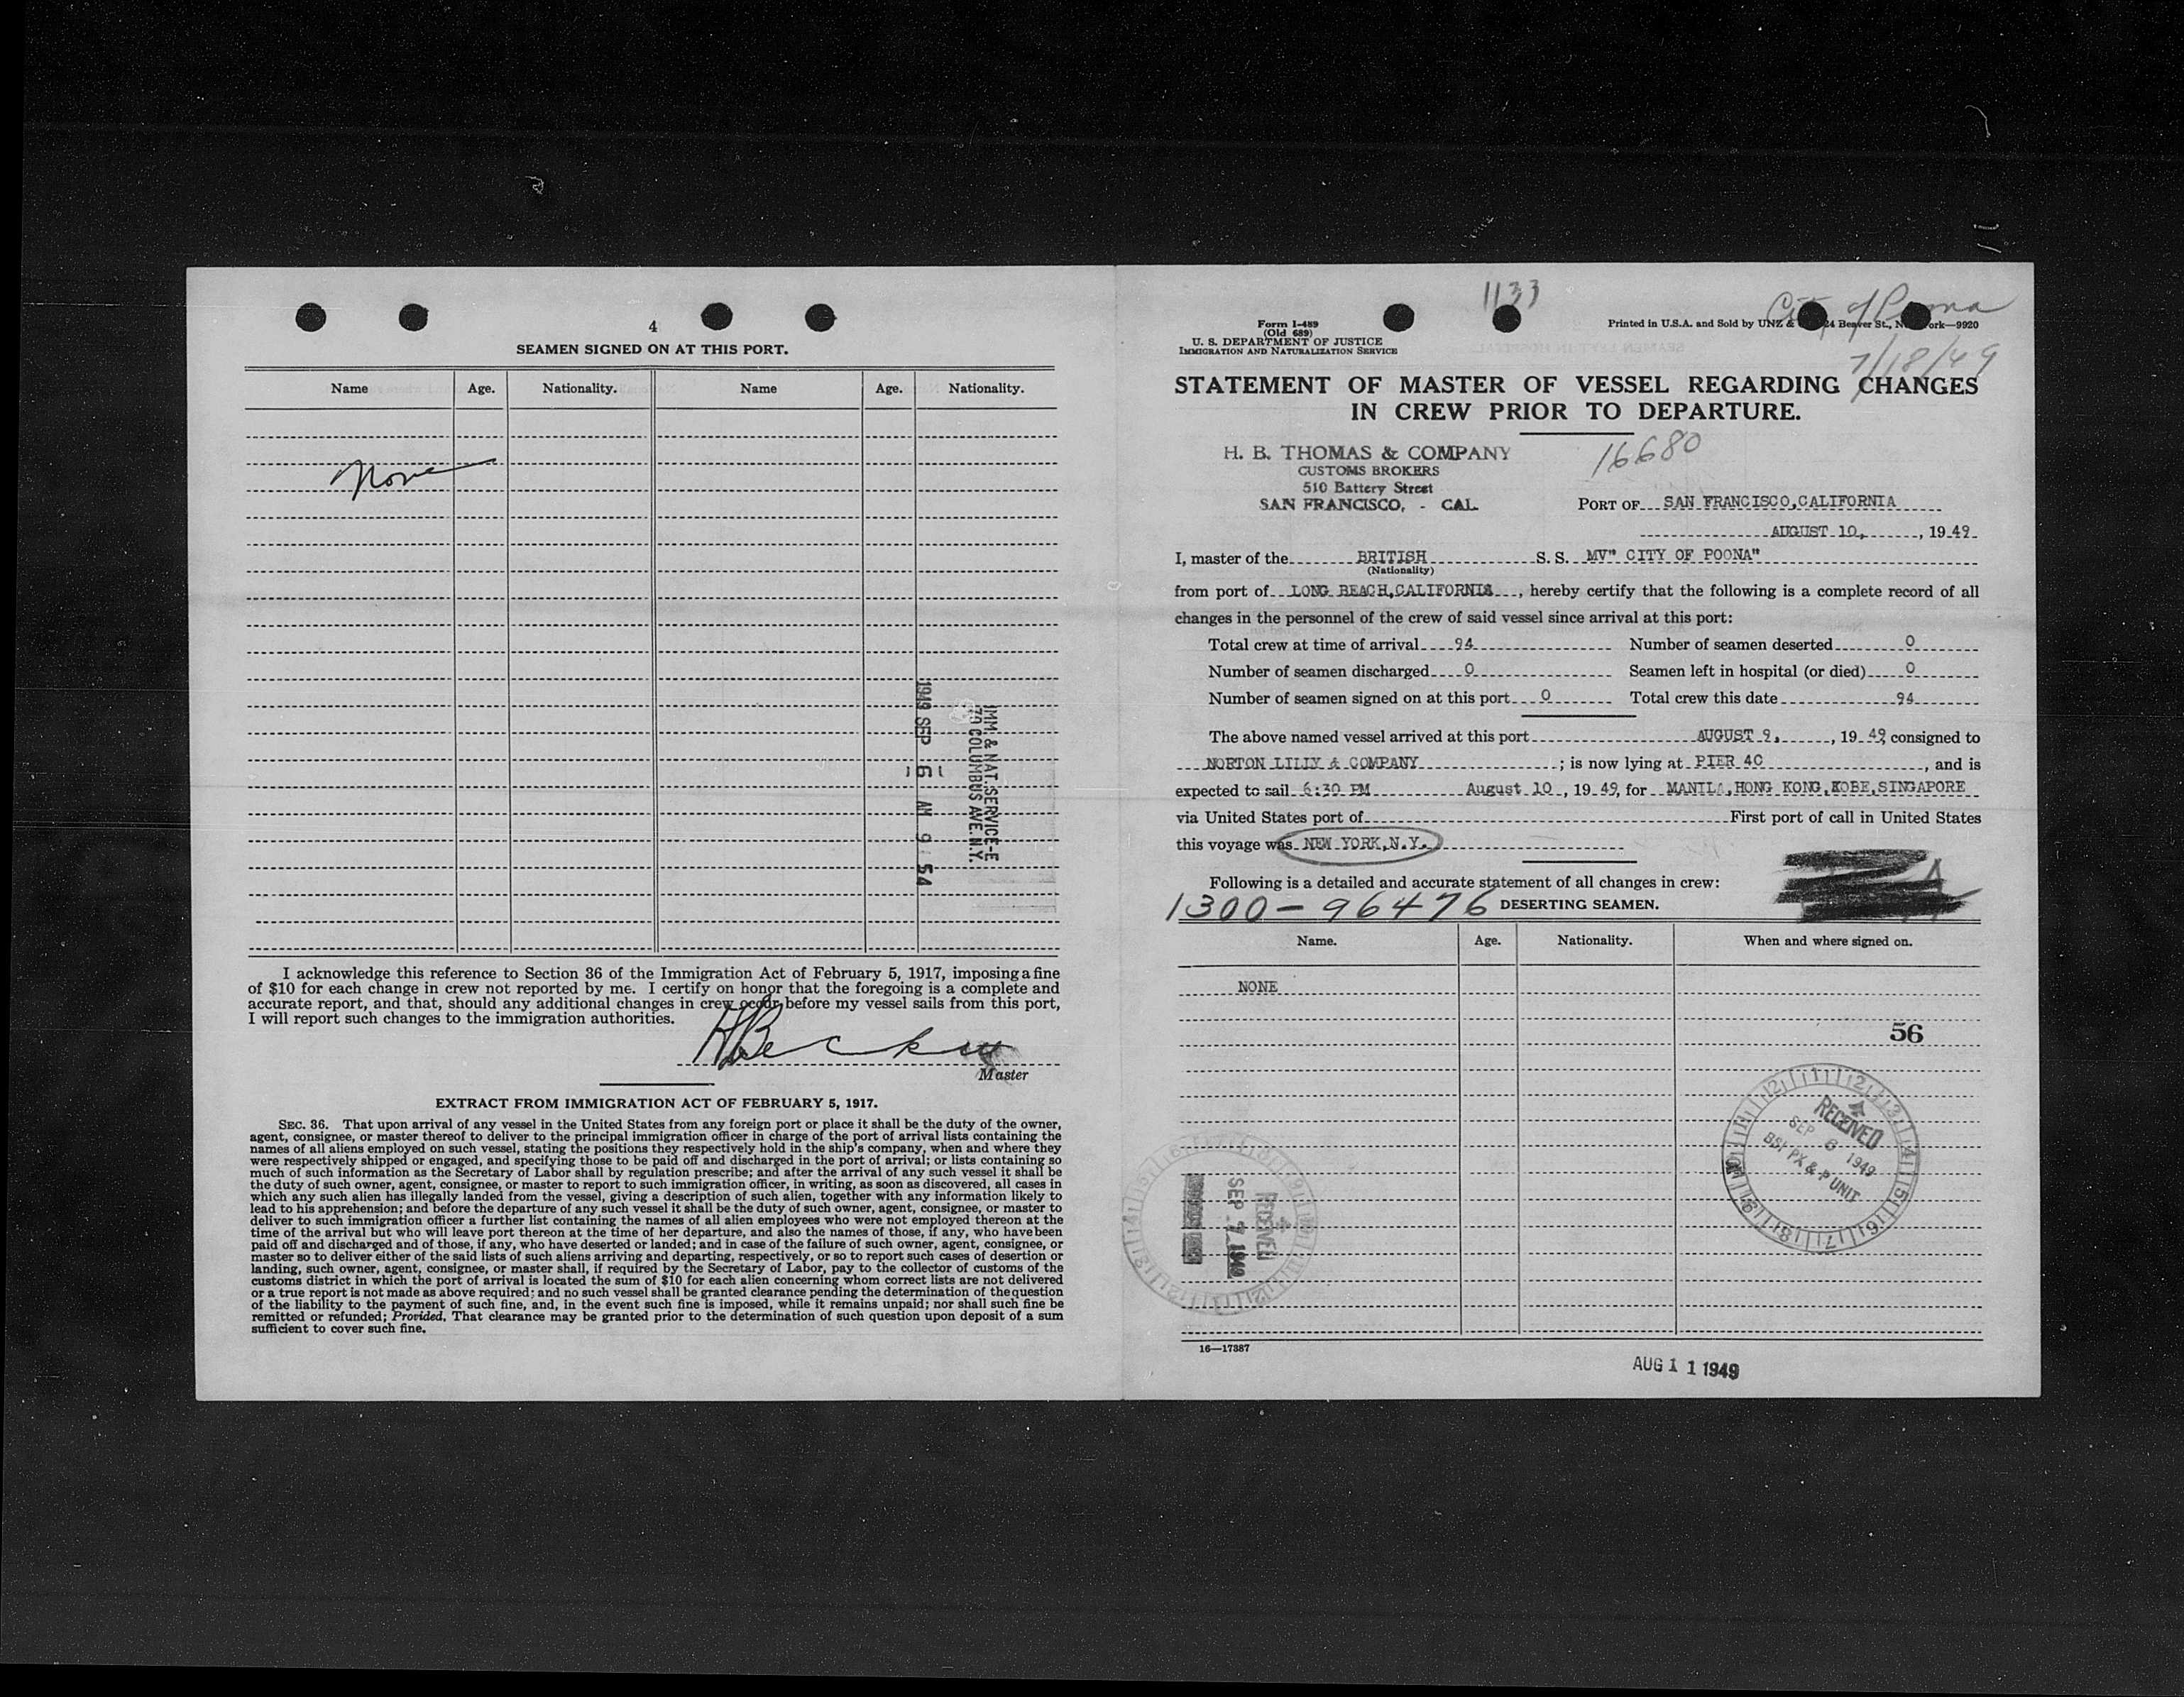 4
SEAMEN SIGNED ON AT THIS PORT.
Name Age. Nationality. Name Age. Nationality.
None
1949 SEP 6 AM 9 54
IMM. & NAT. SERVICE-E
70 COLUMBUS AVE. N.Y.
I acknowledge this reference to Section 36 of the Immigration Act of February 5, 1917, imposing a fine
of $10 for each change in crew not reported by me. I certify on honor that the foregoing is a complete and
accurate report, and that, should any additional changes in crew occur before my vessel sails from this port,
I will report such changes to the immigration authorities.
Master
EXTRACT FROM IMMIGRATION ACT OF FEBRUARY 5, 1917.
SEC. 36. That upon arrival of any vessel in the United States from any foreign port or place it shall be the duty of the owner,
agent, consignee, or master thereof to deliver to the principal immigration officer in charge of the port of arrival lists containing the
names of all aliens employed on such vessel, stating the positions they respectively hold in the ship's company, when and where they
were respectively shipped or engaged, and specifying those to be paid off and discharged in the port of arrival; or lists containing so
much of such information as the Secretary of Labor shall by regulation prescribe; and after the arrival of any such vessel it shall be
the duty of such owner, agent, consignee, or master to report to such immigration officer, in writing, as soon as discovered, all cases in
which any such alien has illegally landed from the vessel, giving a description of such alien, together with any information likely to
lead to his apprehension; and before the departure of any such vessel it shall be the duty of such owner, agent, consignee, or master to
deliver to such immigration officer a further list containing the names of all alien employees who were not employed thereon at the
time of the arrival but who will leave port thereon at the time of her departure, and also the names of those, if any, who have been
paid off and discharged and of those, if any, who have deserted or landed; and in case of the failure of such owner, agent, consignee, or
master so to deliver either of the said lists of such aliens arriving and departing, respectively, or so to report such cases of desertion or
landing, such owner, agent, consignee, or master shall, if required by the Secretary of Labor, pay to the collector of customs of the
customs district in which the port of arrival is located the sum of $10 for each alien concerning whom correct lists are not delivered
or a true report is not made as above required; and no such vessel shall be granted clearance pending the determination of the question
of the liability to the payment of such fine, and, in the event such fine is imposed, while it remains unpaid; nor shall such fine be
remitted or refunded; Provided, That clearance may be granted prior to the determination of such question upon deposit of a sum
sufficient to cover such fine.
1133
City of Poona
7/18/49
Form I-489
(Old 689)
U. S. DEPARTMENT OF JUSTICE
IMMIGRATION AND NATURALIZATION SERVICE
Printed in U.S.A. and Sold by UNZ & 24 Beaver St., N ork—9920
STATEMENT OF MASTER OF VESSEL REGARDING CHANGES
IN CREW PRIOR TO DEPARTURE.
H. B. THOMAS & COMPANY
CUSTOMS BROKERS
510 Battery Street
SAN FRANCISCO, - CAL.
16680
PORT OF SAN FRANCISCO,CALIFORNIA
AUGUST 10, , 1949
I, master of the BRITISH S. S. MV" CITY OF POONA"
(Nationality)
from port of LONG BEACH,CALIFORNIA , hereby certify that the following is a complete record of all
changes in the personnel of the crew of said vessel since arrival at this port:
Total crew at time of arrival 94 Number of seamen deserted 0
Number of seamen discharged 0 Seamen left in hospital (or died) 0
Number of seamen signed on at this port 0 Total crew this date 94
The above named vessel arrived at this port AUGUST 9, , 1949 consigned to
NORTON LILLY & COMPANY ; is now lying at PIER 40 , and is
expected to sail 6:30 PM August 10 , 1949, for MANILA,HONG KONG,KOBE,SINGAPORE
via United States port of First port of call in United States
this voyage was NEW YORK,N.Y.
Following is a detailed and accurate statement of all changes in crew:
1300-96476 DESERTING SEAMEN.
Name. Age. Nationality. When and where signed on.
NONE
56
RECEIVED
SEP 6 1949
BSI PX & P UNIT
RECEIVED
SEP 7 1949
16—17887
AUG 11 1949